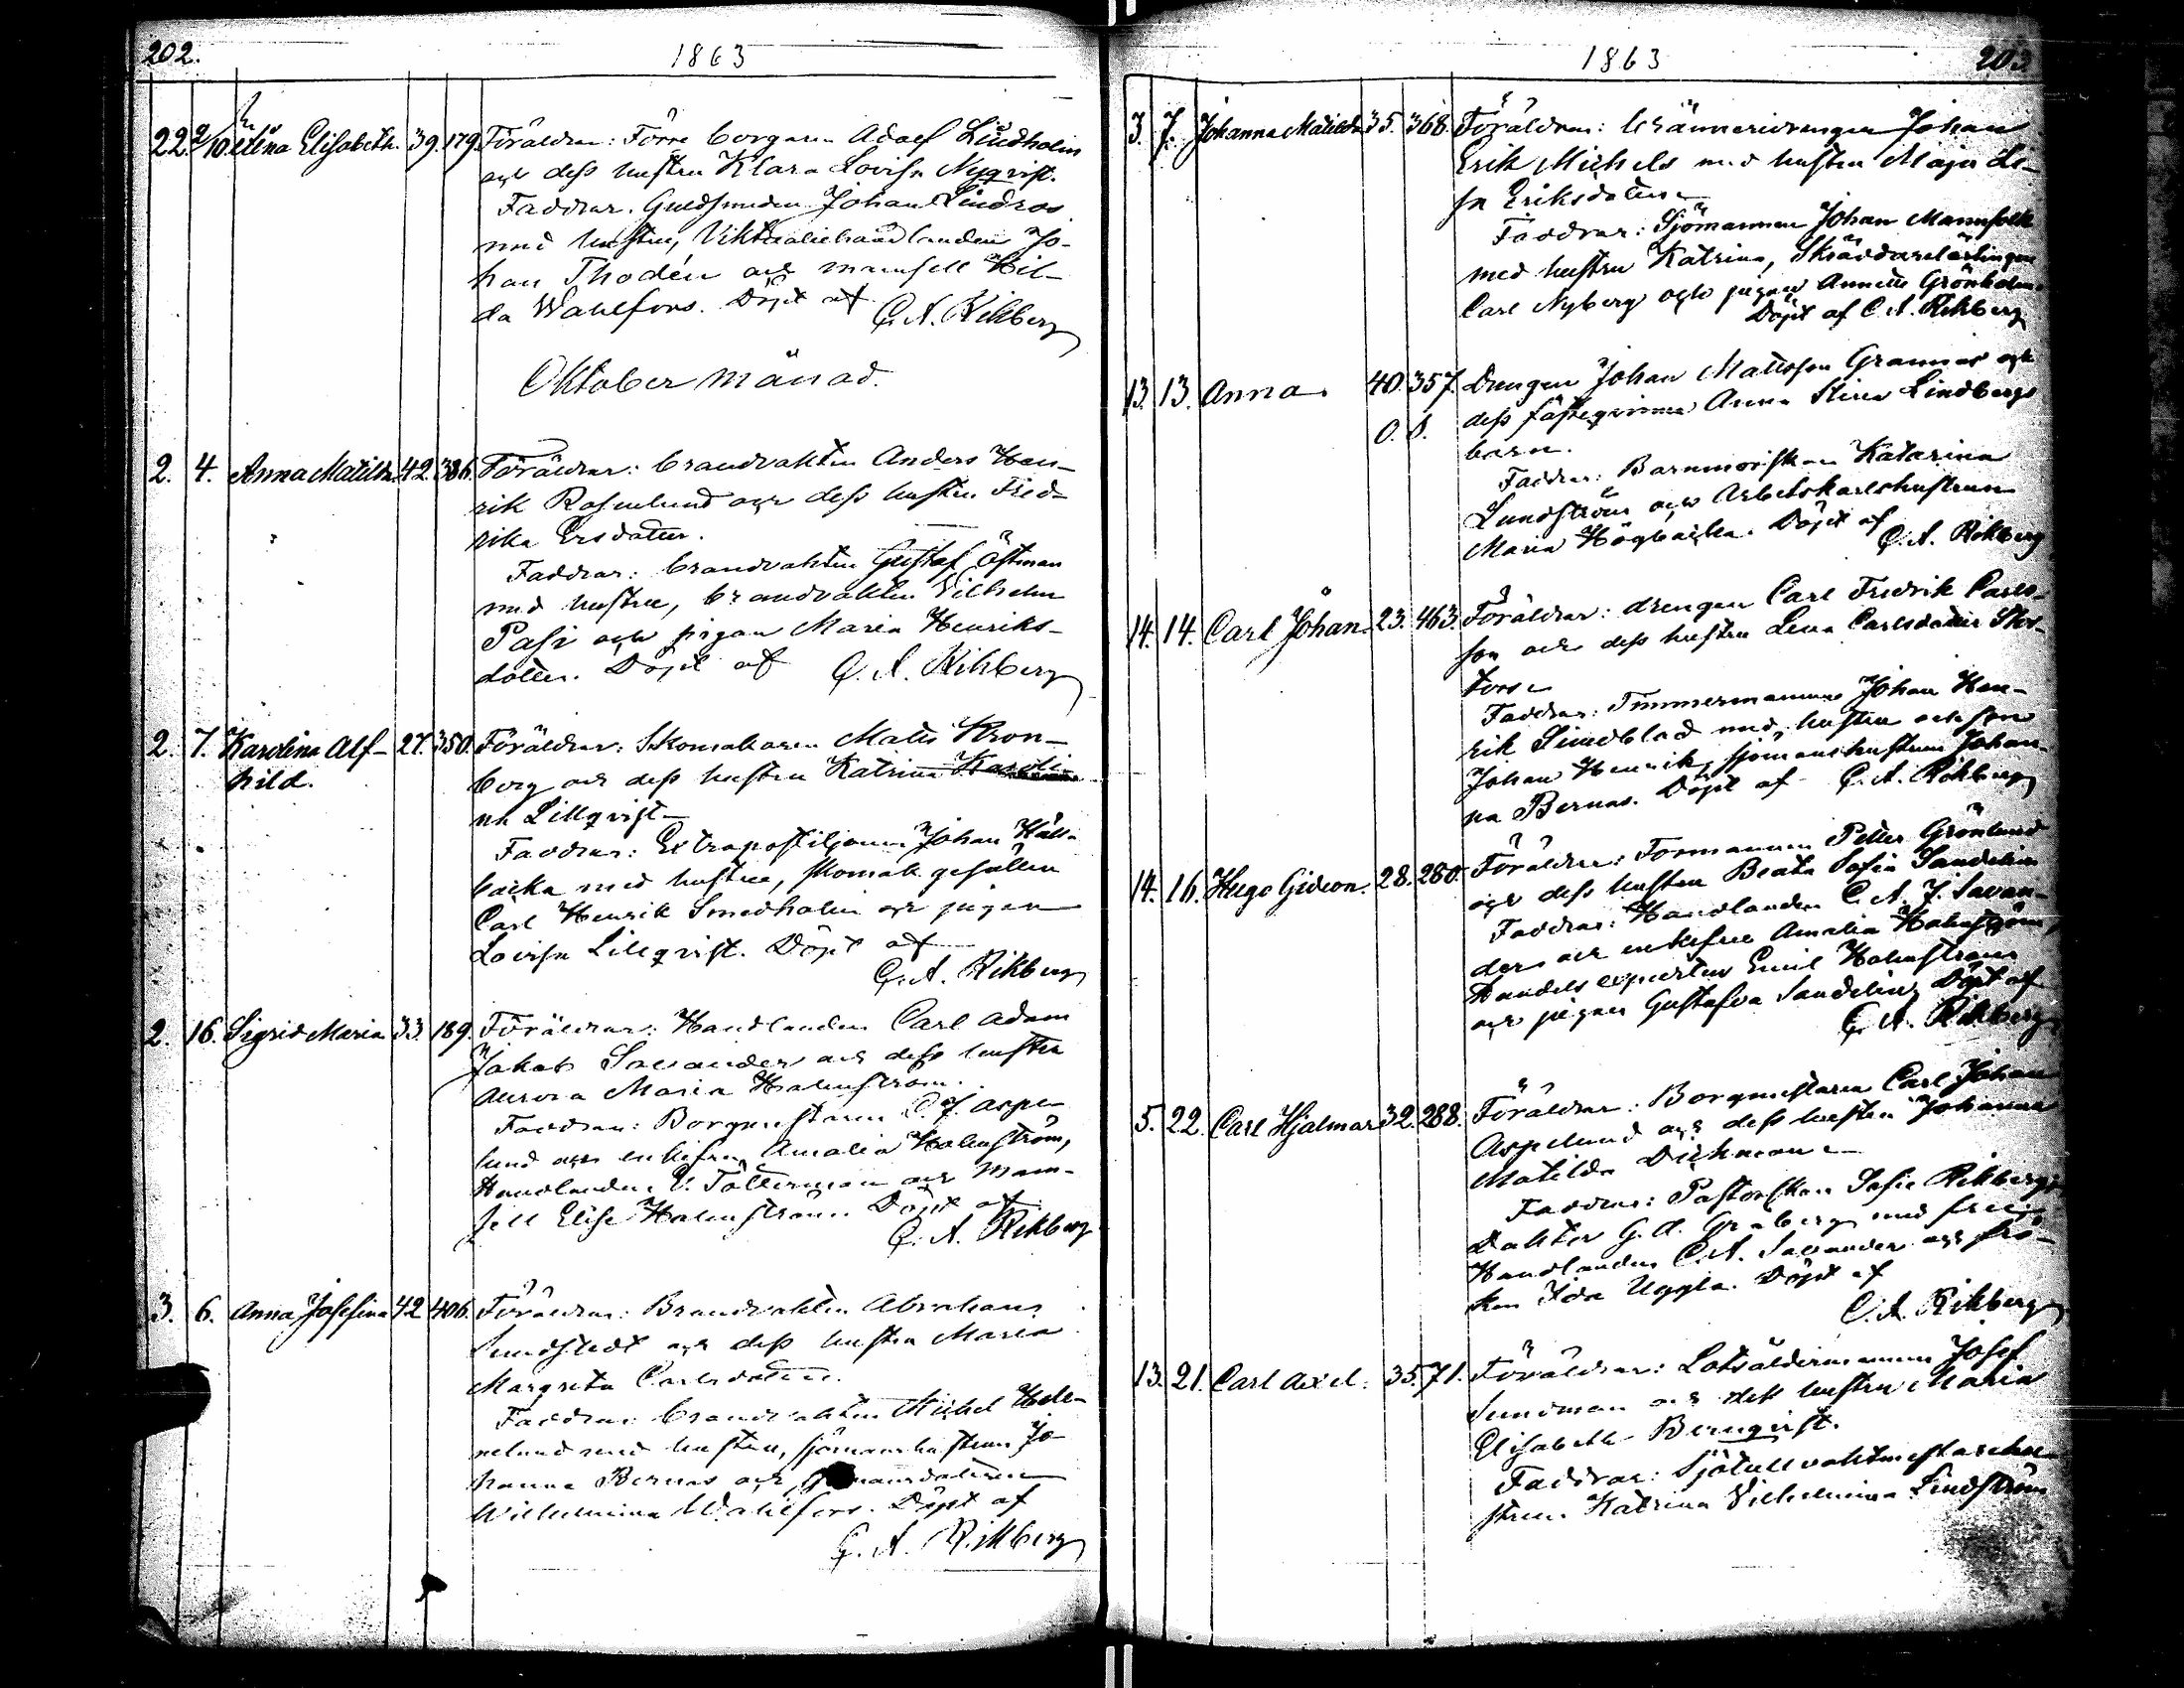 202.
1863
22. 2/10 Elina Elisabeth. 39. 179. Föräldrar: Förre borgaren Adolf Lindholm
och dess hustru Klara Lovisa Nyqvist.
Faddrar. Guldsmeden Johan Lindros
med hustru, Viktualiehandlanden Jo-
han Thodén och mamsell Hil-
da Wahlfors. Döpt af
C. A. Rikberg
Oktober månad.
2. 4. Anna Matilda 42. 386. Föräldrar: brandvakten Anders Hen-
rik Rosenlund och dess hustru Fred-
rika Ersdotter.
Faddrar: brandvakten Gustaf Östman
med hustru, brandvakten Vilhelm
Pasi och pigan Maria Henriks-
dotter. Döpt af C. A. Rikberg
2. 7. Karolina Alf- 27. 350. Föräldrar: Skomakaren Matts Kron-
hild. berg och dess hustru Katrina Karoli-
na Lillqvist
Faddrar: Extrapostiljonen Johan Käll-
backa med hustru, skomak. gesällen
Carl Henrik Smedholm och pigan
Lovisa Lillqvist. Döpt af
C. A. Rikberg
2. 16. Sigrid Maria 33. 189. Föräldrar: Handlanden Carl Adam
Jakob Savander och dess hustru
Aurora Maria Holmström.
Faddrar: Borgmestaren C. J. Aspe-
lund och enkefru Amalia Holmström,
Handlanden V. Tötterman och Mam-
sell Elise Holmström Döpt af
C. A. Rikberg
3. 6. Anna Josefina 42 406. Föräldrar: Brandvakten Abraham
Sundstedt och dess hustru Maria
Margreta Carlsdotter.
Faddrar: brandvakten Michel Hele-
nelund med hustru, sjömanshustrun Jo-
hanna Bernas och
Wilhelmina Wahlfors. Döpt af
C. A. Rikberg
1863
203
3. 7. Johanna Matilda 35. 368. Föräldrar: bränneridrengen Johan
Erik Michels med hustru Maja Li-
sa Eriksdotter
Faddrar: Sjömannen Johan Mannfolk
med hustru Katrina, Skräddarelärlingen
Carl Nyberg och pigan Annette Grönholm.
Döpt af C. A. Rikberg
13. 13. Anna 40. 357. Drengen Johan Mattsson Grannas och
O. S. dess fästeqvinna Anna Stina Lindbergs
barn.
Faddrar: Barnmorskan Katarina
Lundström och Arbetskarlshustrun
Maria Högbacka. Döpt af
C. A. Rikberg
14. 14. Carl Johan. 23. 463. Föräldrar: drengen Carl Fredrik Carls-
son och dess hustru Lena Carlsdotter Stor-
tors
Faddrar: Timmermannen Johan Hen-
rik Lindblad med hustru och son
Johan Henrik, sjömanshustrun Johan-
na Bernas. Döpt af C. A. Rikberg
14. 16. Hugo Gideon. 28. 280. Föräldrar: Formannen Petter Grönlund
och dess hustru Beata Sofia Sandelin
Faddrar: Handlanden C. A. J. Savan-
der och enkefru Amalia Holmström,
Handels expediten Emil Holmström
och pigan Gustafva Sandelin, Döpt af
C. A. Rikberg
5. 22. Carl Hjalmar 32. 288. Föräldrar: Borgmestaren Carl Johan
Aspelund och dess hustru Johanna
Matilda Dickman
Faddrar: Pastorskan Sofie Rikberg,
Doktor G. A. Graberg med fru,
Handlanden C. A. Savander och frö-
ken Ida Uggla. Döpt af
C. A. Rikberg
13. 21. Carl Axel. 35. 71. Föräldrar: Lotsåldermannen Josef
Sundman och dess hustru Maria
Elisabeth Bernqvist.
Faddrar: Sjötullvaktmestarehu-
strun Katrina Vilhelmina Lindström